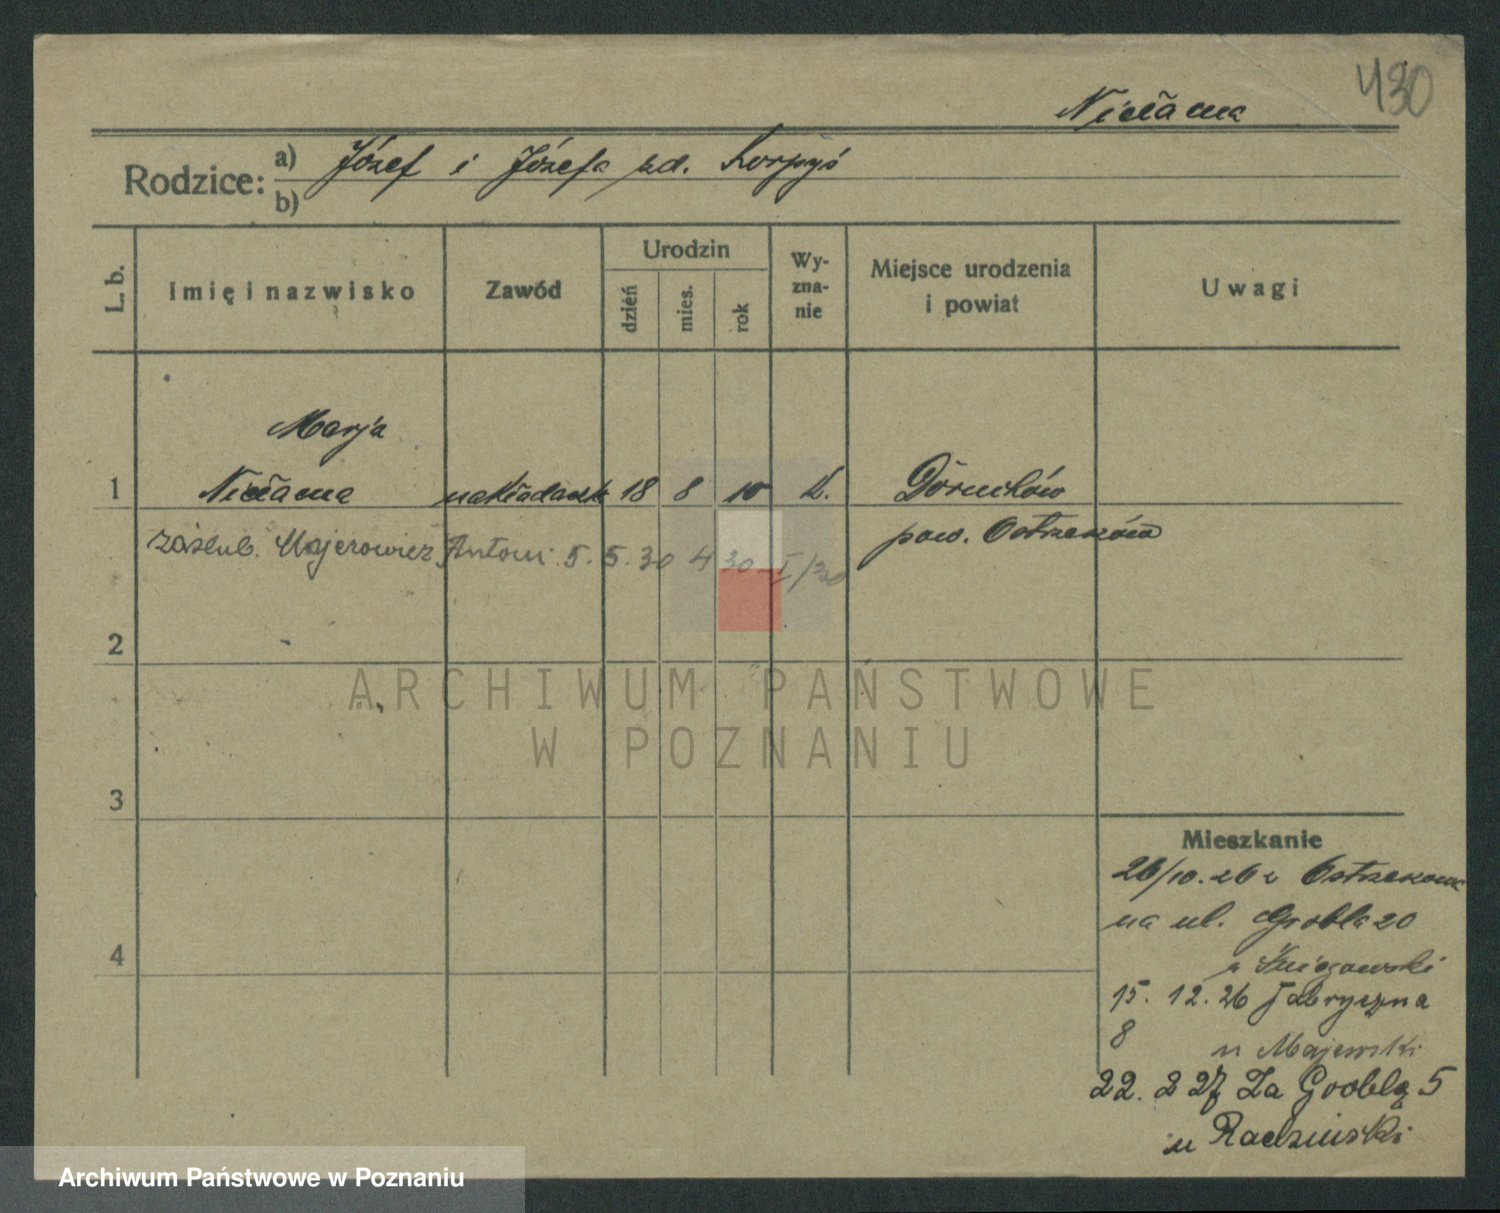 430
Niełacna
Rodzice: a) Józef i Józefa zd. Korpyś
b)
L. b. Imię i nazwisko Zawód Urodzin dzień mies. rok Wy-zna-nie Miejsce urodzenia i powiat Uwagi
Marja
1 Niełacna nakładaczk 18 8 10 k. Doruchów
zaślub. Majerowicz Antoni 5. 5. 30 4 30 I/30 pow. Ostrzeszów
2
3
4
Mieszkanie
26/10.26 z Ostrzeszowa
na ul. Grobla 20
u
15. 12. 26 Fabryczna
8 u Majewski
22. 2 27 Za Groblą 5
u Radziński
ARCHIWUM PAŃSTWOWE
W POZNANIU
Archiwum Państwowe w Poznaniu